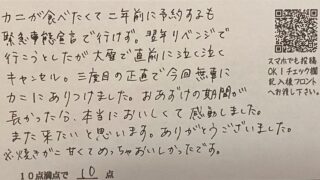 カニが食べたくて二年前に予約するも
緊急事態宣言で行けず。翌年リベンジで
行こうとしたが大雪で直前に泣く泣く
キャンセル。三度目の正直で今回無事に
カニにありつけました。おあずけの期間が
長かった分、本当においしくて感動しました。
また来たいと思います。ありがとうございました。
焼きガニ甘くてめっちゃおいしかったです。
10点満点で 10 点
スマホでも投稿
OK！チェック欄
記入後フロント
へお渡し下さい。